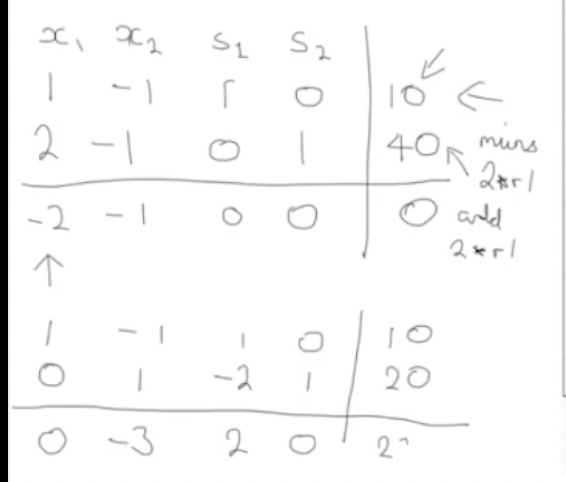 x₁ x₂ s₁ s₂
1 -1 1 0 10
2 -1 0 1 40 minus 2*r1
-2 -1 0 0 0 add 2*r1
1 -1 1 0 10
0 1 -2 1 20
0 -3 2 0